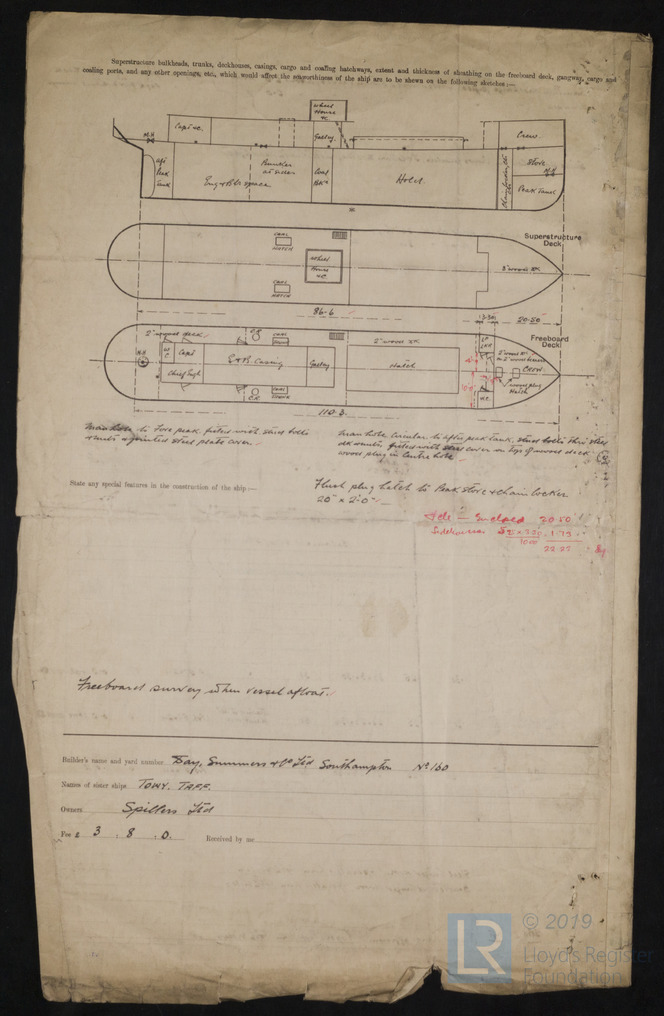 Superstructure bulkheads, trunks, deckhouses, casings, cargo and coaling hatchways, extent and thickness of sheathing on the freeboard deck, gangway, cargo and
coaling ports, and any other openings, etc., which would affect the seaworthiness of the ship are to be shewn on the following sketches:—
Wheel
House
&c.
Capt &c.
Galley
Crew
M.H
Aft
Peak
Tank
Eng & Blr space
Bunker
at sides
Coal
Hold
Store
M.H
Peak Tank
Superstructure
Deck.
COAL
HATCH
Wheel
House
&c
COAL
HATCH
86.6
20.50
Freeboard
Deck.
2" wood deck.
M.H
W
C
Capt
Chief Engr
E & B Casing
Galley
COAL
HATCH
2" wood DK
Hatch
W.C.
CREW
wood plug
Hatch
110.3.
Manhole to Fore peak fitted with stud bolts
& nuts & jointed steel plate cover.
Manhole circular to after peak tank, stud bolts thro steel
dk & nuts fitted with steel cover on top of wood deck
wood plug in centre hole
State any special features in the construction of the ship:—
Flush plug hatch to Peak store & chain locker
20" x 2'-0"
Enclosed 20.50
1.75
22.25
Freeboard survey when vessel afloat.
Builder's name and yard number Day, Summers & Co Ltd Southampton No 160
Names of sister ships TOWY. TAFF.
Owners Spillers Ltd
Fee £ 3 . 8 . 0. Received by me
LR
© 2019
Lloyd's Register
Foundation